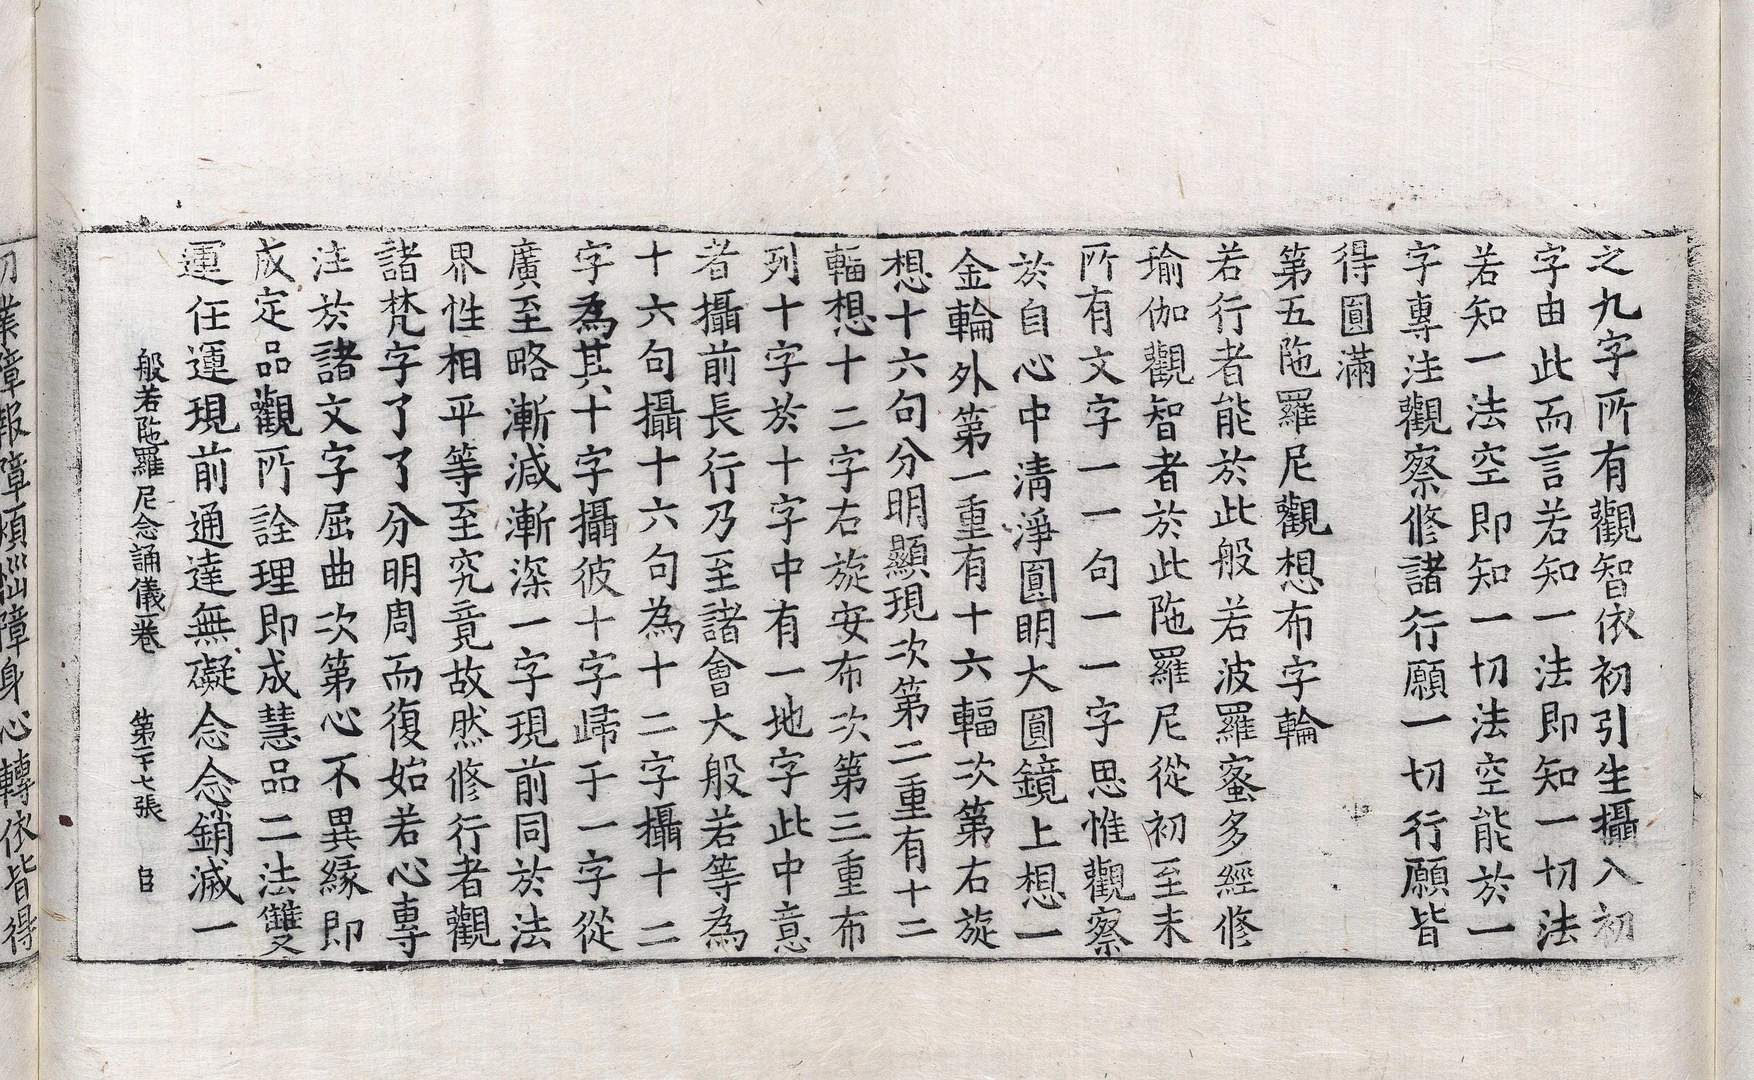 之九字所有觀智依初引生攝入初
字由此而言若知一法即知一切法
若知一法空即知一切法空能於一
字專注觀察修諸行願一切行願皆
得圓滿
第五陁羅尼觀想布字輪
若行者能於此般若波羅蜜多經修
瑜伽觀智者於此陁羅尼從初至末
所有文字一一句一一字思惟觀察
於自心中清淨圓明大圓鏡上想一
金輪外第一重有十六輻次第右旋
想十六句分明顯現次第二重有十二
輻想十二字右旋安布次第三重布
列十字於十字中有一地字此中意
者攝前長行乃至諸會大般若等為
十六句攝十六句為十二字攝十二
字為其十字攝彼十字歸于一字從
廣至略漸減漸深一字現前同於法
界性相平等至究竟故然修行者觀
諸梵字了了分明周而復始若心專
注於諸文字屈曲次第心不異緣即
成定品觀所詮理即成慧品二法雙
運任運現前通達無礙念念銷滅一
般若陁羅尼念誦儀一卷 第二十七張
切業障報障煩惱障身心轉依皆得